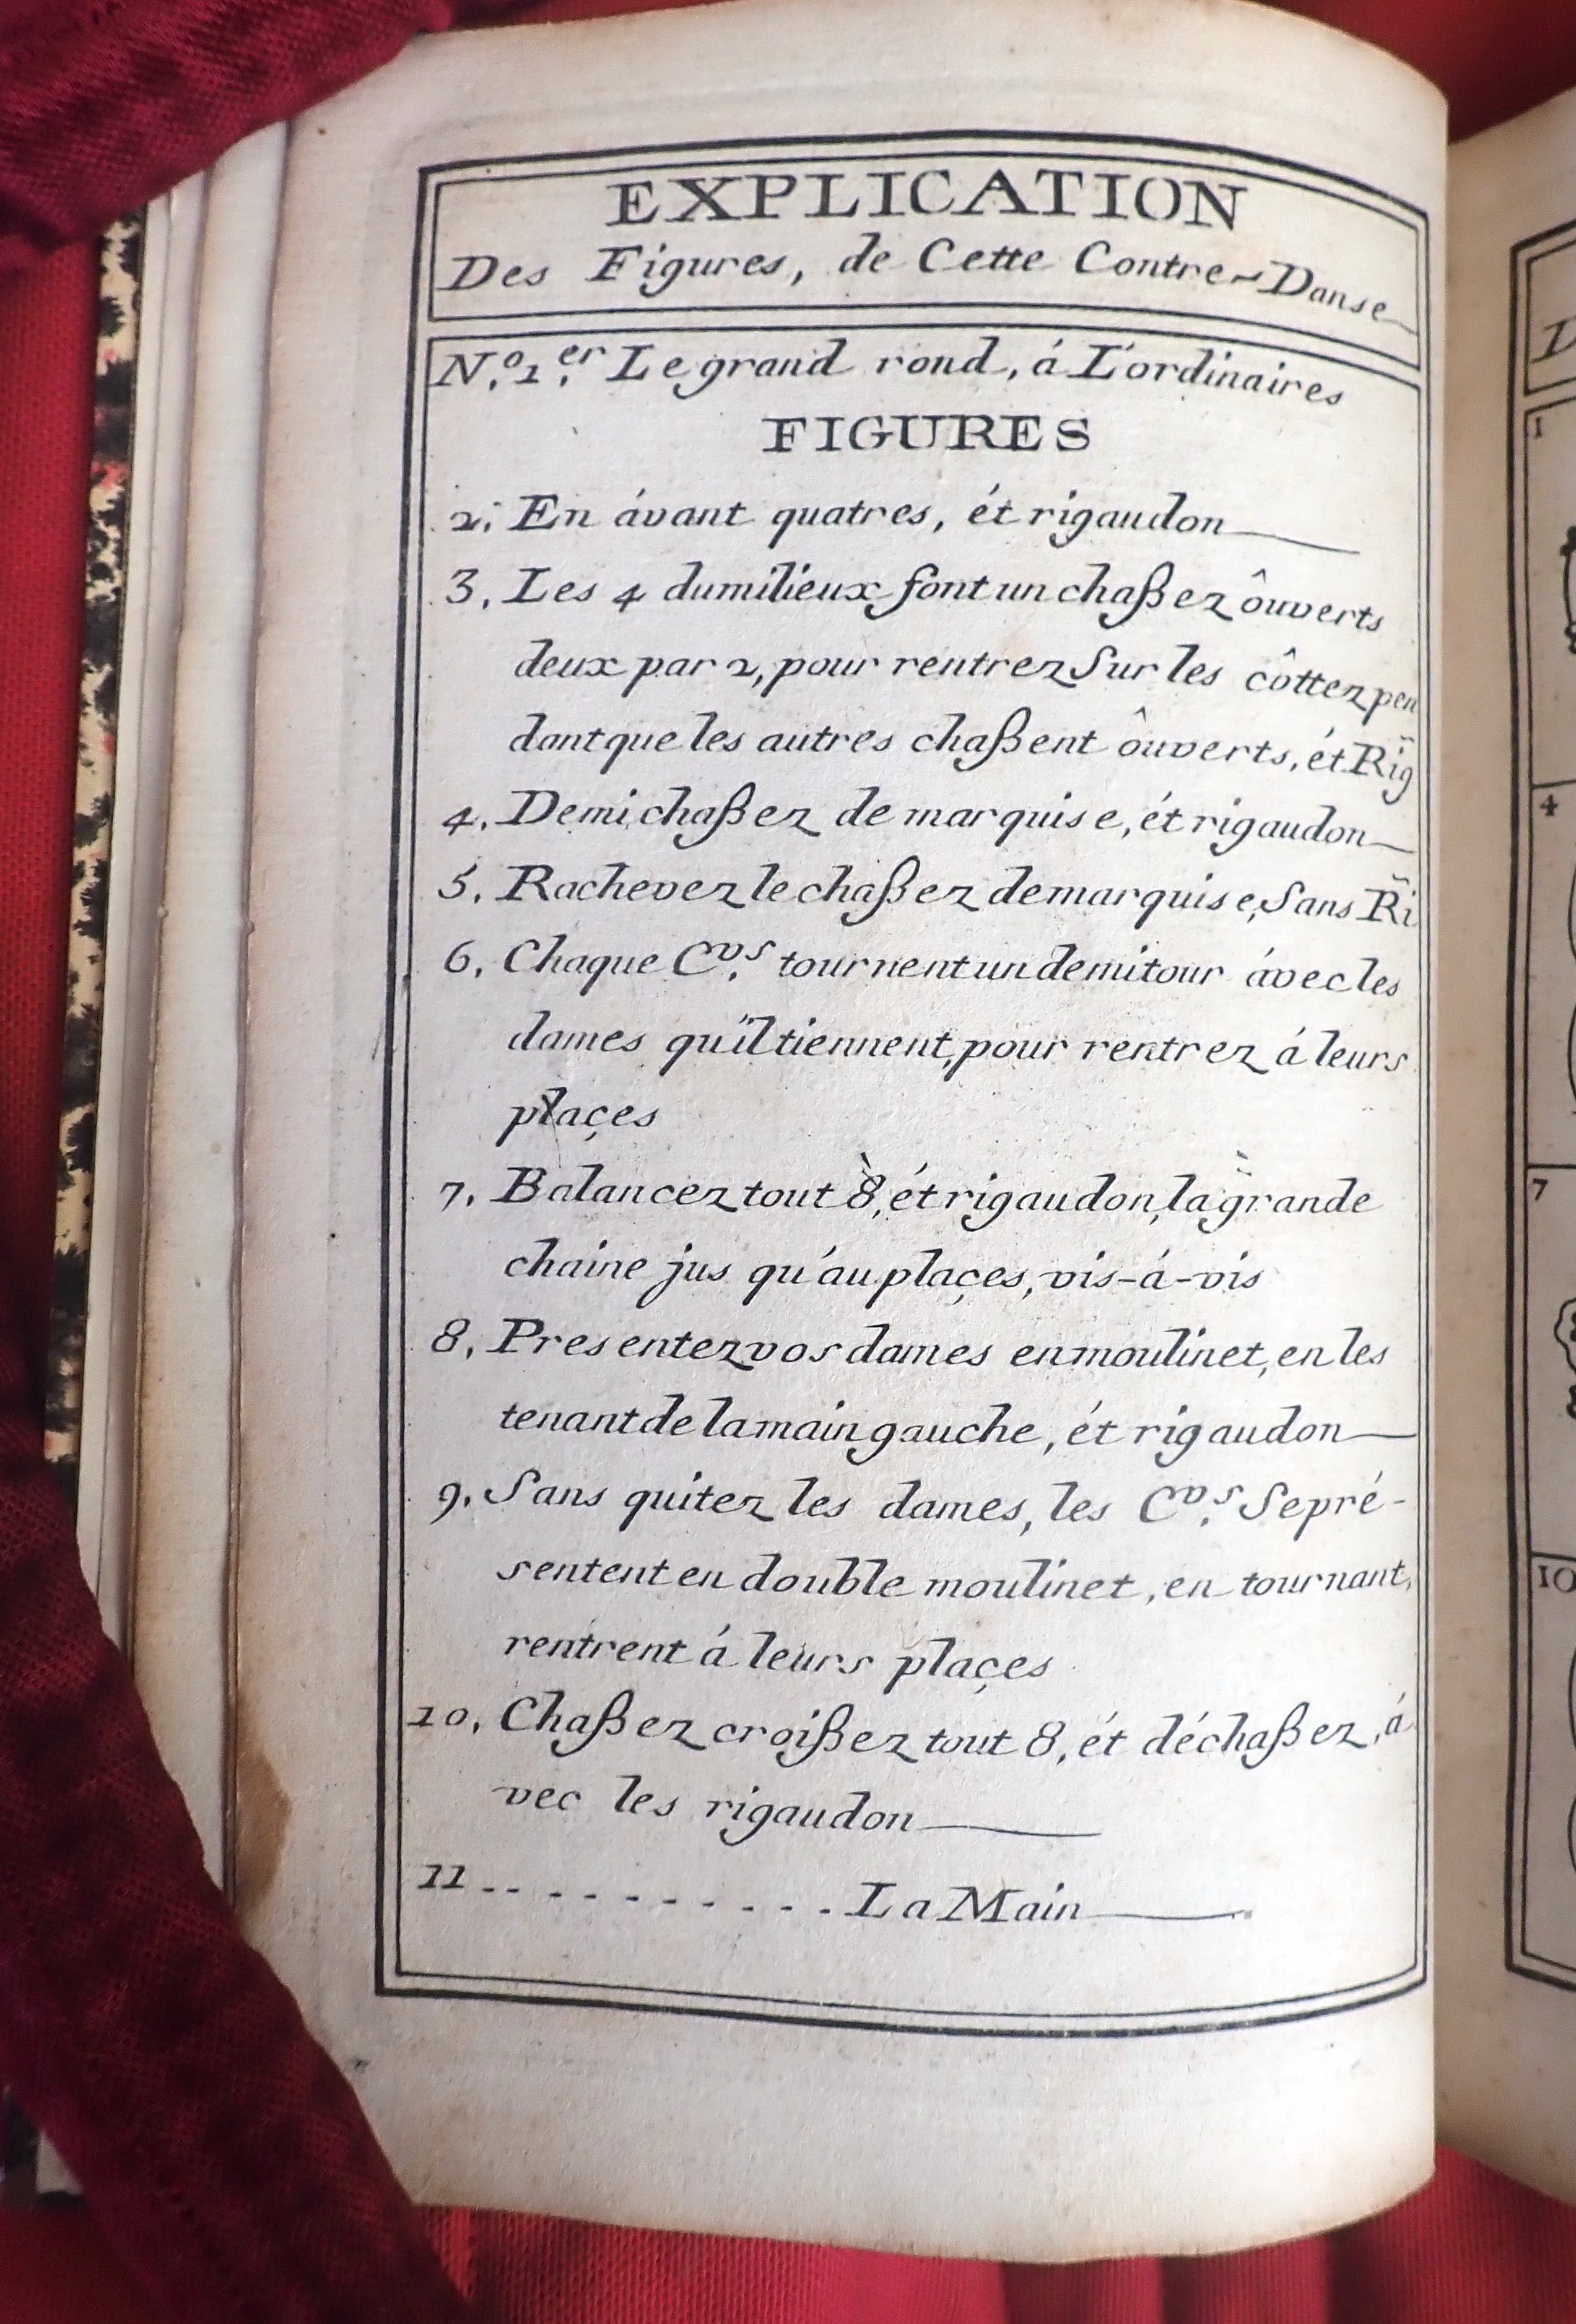 EXPLICATION
Des Figures, de Cette Contre-Danse
N.º 1.er Le grand rond, á L'ordinaires
FIGURES
2. En ávant quatres, ét rigaudon
3. Les 4 du milieux font un chaßez ôuverts
deux par 2, pour rentrez Sur les côttez pen
dant que les autres chaßent ôuverts, ét Rig
4. Demi chaßez de marquise, ét rigaudon
5. Rachevez le chaßez de marquise, Sans Ri
6. Chaque C.vs tournent un demi tour ávec les
dames qu'il tiennent, pour rentrez á leurs
plaçes
7. Balancez tout 8, ét rigaudon, la grande
chaine jus qu'au plaçes, vis-á-vis
8. Presentez vos dames en moulinet, en les
tenant de la main gauche, ét rigaudon
9. Sans quitez les dames, les C.vs Se pré-
sentent en double moulinet, en tournant,
rentrent á leurs plaçes
10. Chaßez croißez tout 8, ét déchaßez, á
vec les rigaudon
11 . . . . . . . . . . La Main
1
4
7
10